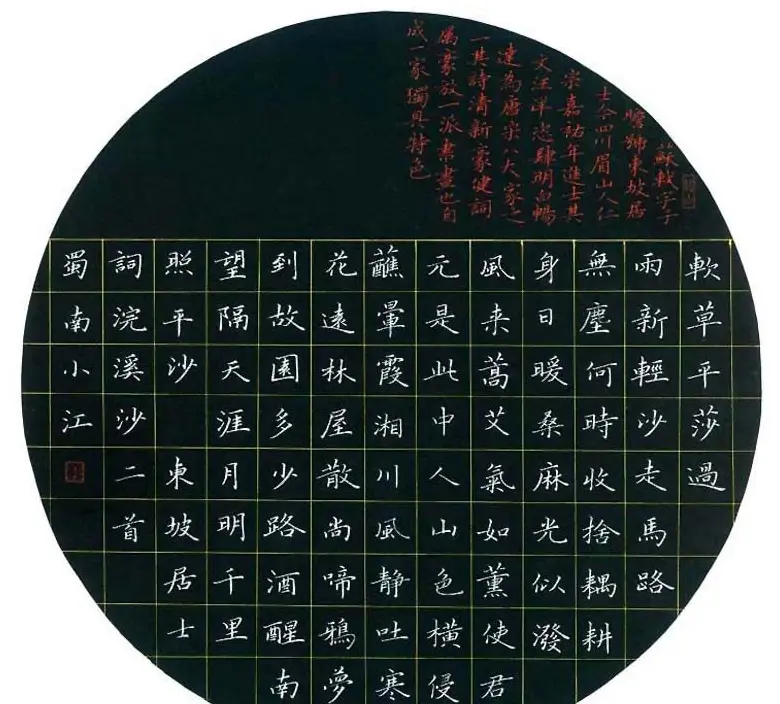 蘇軾字子
瞻號東坡居
士今四川眉山人仁
宗嘉祐年進士其
文汪洋恣肆明白暢
達為唐宋八大家之
一其詩清新豪健詞
屬豪放一派書畫也自
成一家獨具特色
軟草平莎過
雨新輕沙走馬路
無塵何時收捨耦耕
身日暖桑麻光似潑
風来蒿艾氣如薰使君
元是此中人山色橫侵
蘸暈霞湘川風静吐寒
花遠林屋散尚啼鴉夢
到故園多少路酒醒南
望隔天涯月明千里
照平沙 東坡居士
詞浣溪沙二首
蜀南小江